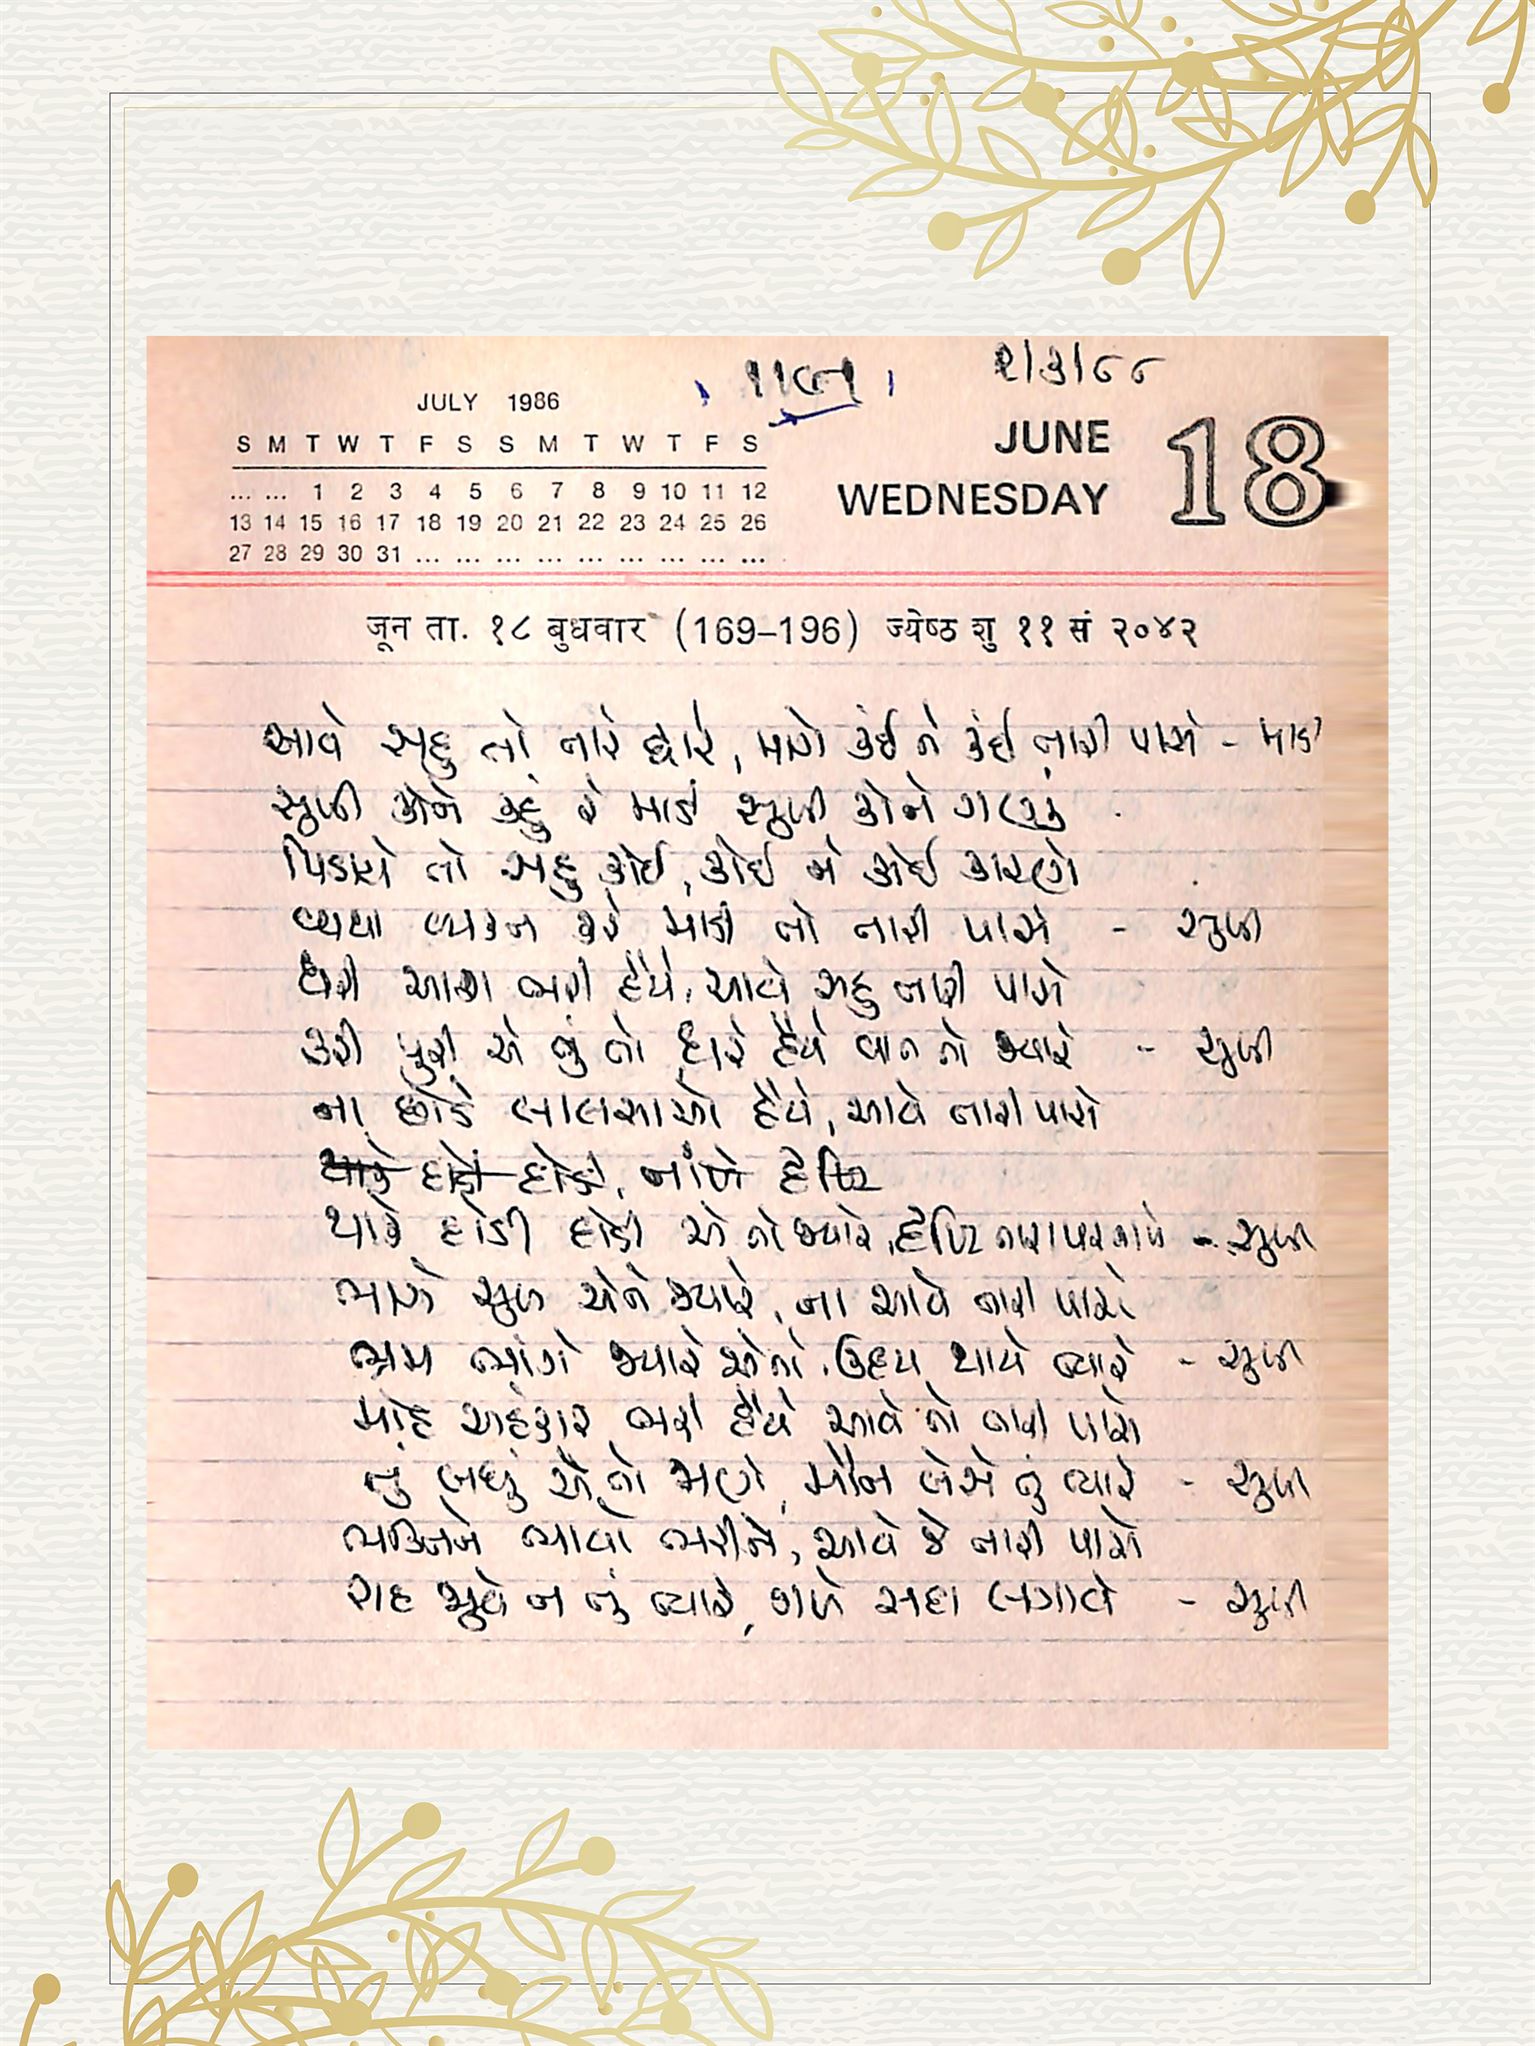 ૨/૩/૮૮
JULY 1986
JUNE
WEDNESDAY 18
S M T W T F S S M T W T F S
... ... 1 2 3 4 5 6 7 8 9 10 11 12
13 14 15 16 17 18 19 20 21 22 23 24 25 26
27 28 29 30 31 ... ... ... ... ... ... ... ... ...
जून ता. १८ बुधवार (169–196) ज्येष्ठ शु ११ सं २०४२
આવે સહુ તો તારે દ્વારે, માગે કંઈ ને કંઈ તારી પાસે - માડી
સુખી કોને કહું રે માડી સુખી કોને ગણું
પિડાયે તો સહુ કોઈ, કોઈ ને કોઈ કારણે
વ્યથા વ્યક્ત કરે માડી તો તારી પાસે - સુખી
ધરી આશા ભરી હૈયે, આવે સહુ તારી પાસે
કરી પુરી એ તું તો હારે હૈયે વાત તો જ્યારે - સુખી
ના છોડે લાલસાઓ હૈયે, આવે તારી પાસે
થાકે દોડી દોડી એ તો જ્યારે, દૃષ્ટિ તારા પર નાખે - સુખી
માને સુખ એને જ્યારે, ના આવે તારી પાસે
ભ્રમ ભાંગે જ્યારે એનો, ઉદય થાયે ત્યારે - સુખી
મોહ અહંકાર ભરી હૈયે આવે તો તારી પાસે
તું બધું એ તો જાણે, મૌન બેસે તું ત્યારે - સુખી
ભક્તિને ભાવો ભરીને, આવે જે તારી પાસે
રાહ જુવે ન તું ત્યારે, ગળે સદા લગાવે - સુખી